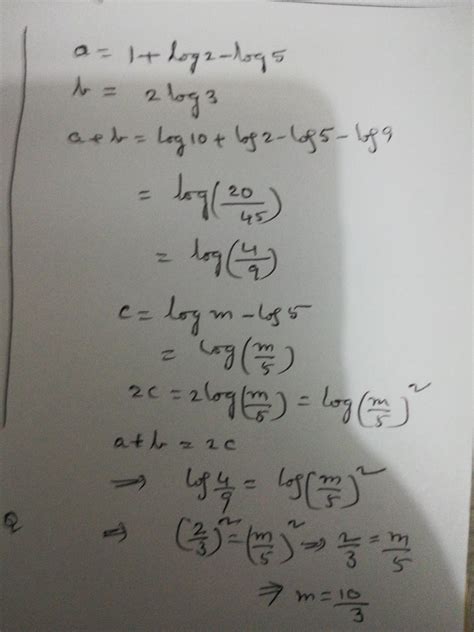 a = 1 + log 2 - log 5
b = 2 log 3
a + b = log 10 + log 2 - log 5 - log 9
= log(20/45)
= log(4/9)
c = log m - log 5
= log(m/5)
2c = 2 log(m/5) = log(m/5)²
a + b = 2c
⇒ log 4/9 = log(m/5)²
Q ⇒ (2/3)² = (m/5)² ⇒ 2/3 = m/5
⇒ m = 10/3